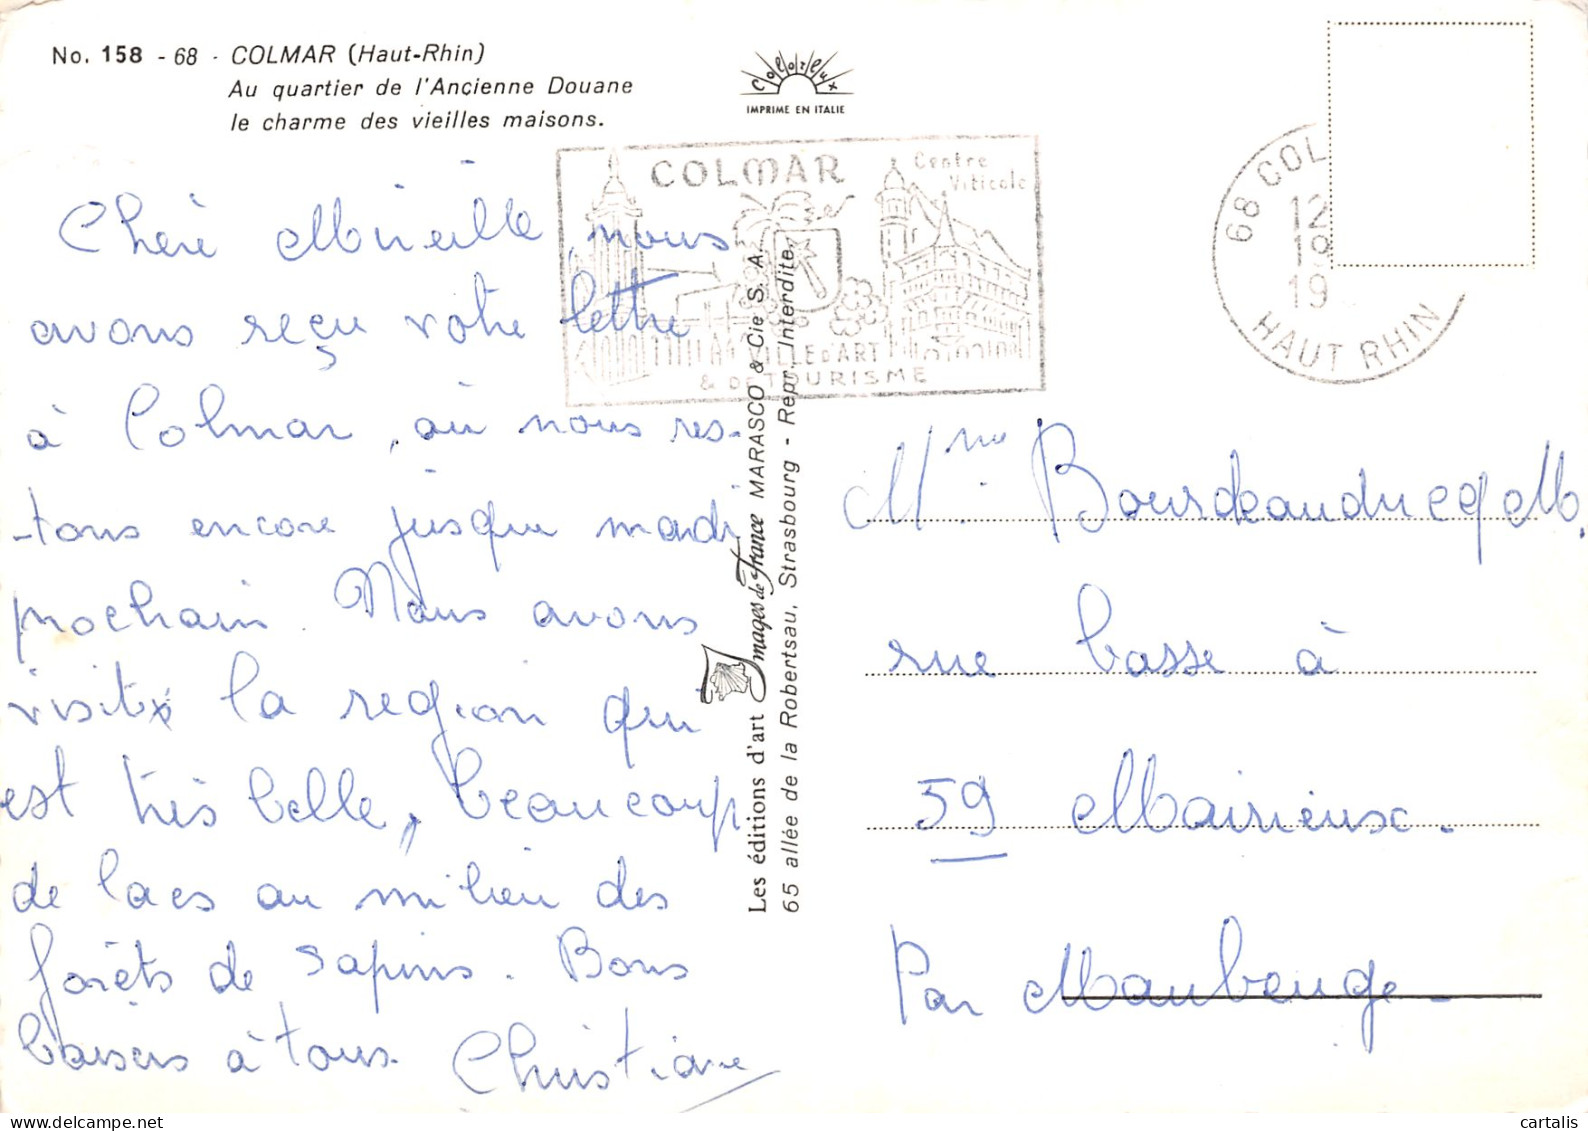 No. 158 - 68 - COLMAR (Haut-Rhin)
Au quartier de l'Ancienne Douane
le charme des vieilles maisons.
Colorlux
IMPRIME EN ITALIE
COLMAR
Centre
Viticole
VILLE D'ART
& DE TOURISME
68 COL
12
19
HAUT RHIN
Chère Mireille, nous
avons reçu votre lettre
à Colmar, où nous res-
-tons encore jusque mardi
prochain. Nous avons
visité la region qui
est très belle, beaucoup
de lacs au milieu des
forêts de sapins. Bons
baisers à tous.
Christiane
Les éditions d'art Images de France MARASCO & Cie S. A.
65 allée de la Robertsau, Strasbourg - Repr. Interdite.
Mme
rue basse à
59 Mairieux.
Par Maubeuge -
cartalis
www.delcampe.net